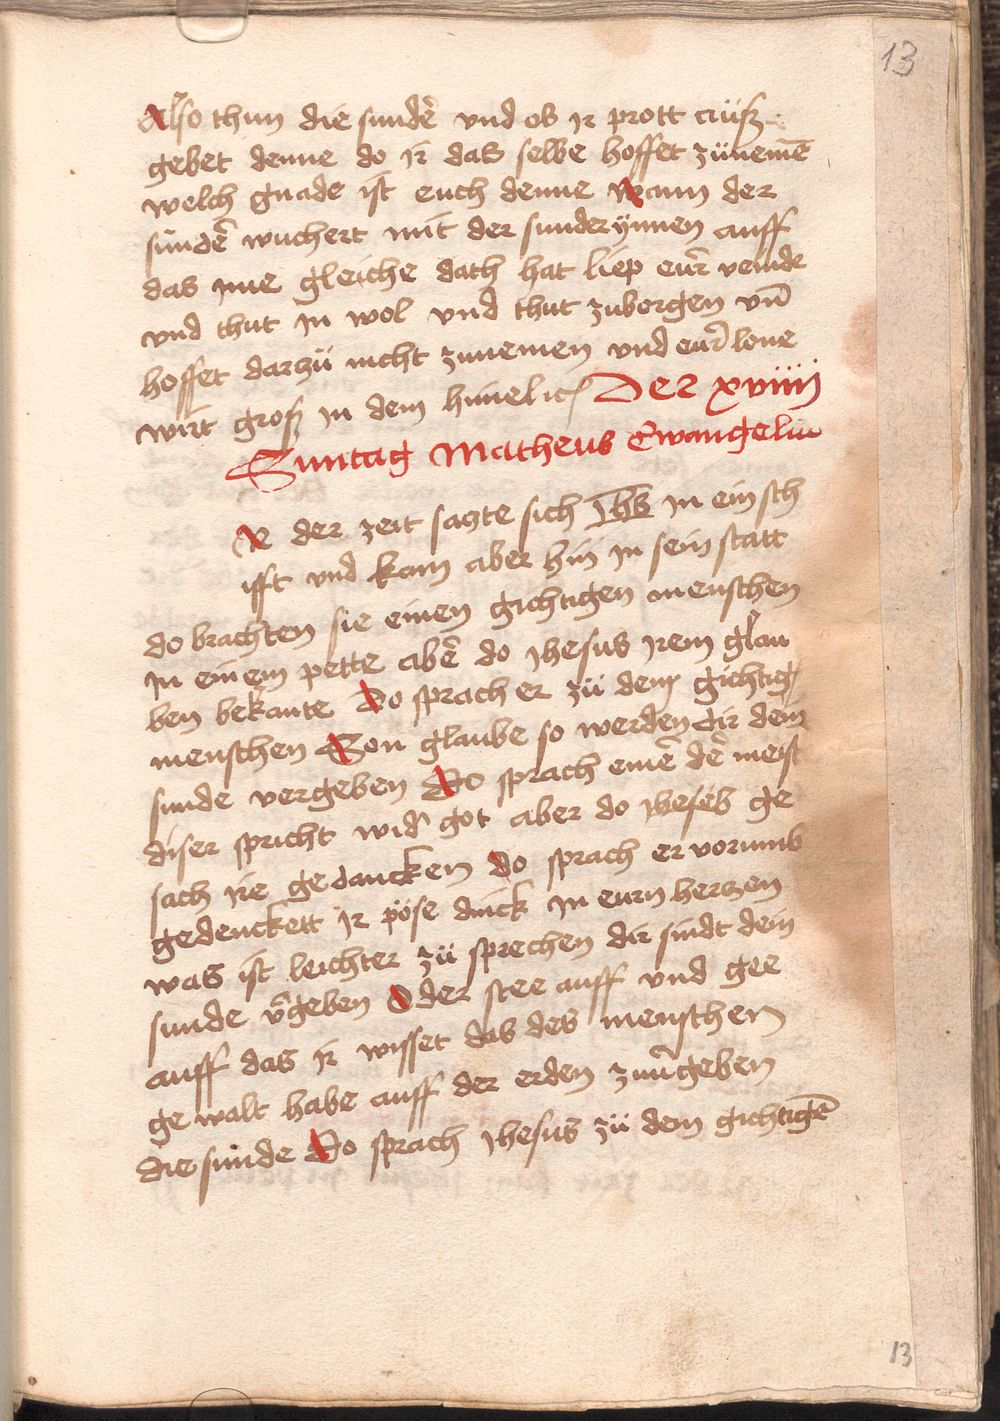 13
Also thun die sundē vnd ob jr prott crüſz
gebet denne do ir das selbe hoffet zünemē
welch gnade ist euch denne wann der
sündē wuchert mit der sunderynnen auff
das nue gleiche dath hat liep eur̄ veinde
vnd thut jn wol vnd thut zuborgen vn̄
hoffet darzü nicht zunemen vnd eur̄ lone
wirt groſz jn dem himelich Der xviiij
Suntag Matheus Ewangeliū
N der zeit sagte sich jh̄s jn ein sch
ifft vnd kam aber hin jn sein statt
do brachten sie einen gichtigen menschen
jn einem pette abē do jhesus jrem glau
ben bekante Do sprach er zü dem gichtigē
menschen Son glaube so werden dir dein
sunde vergeben Do sprach einē dē meist
diser spricht wid̄ got aber do jhesus ge
sach jre gedancken do sprach er vorumb
gedenckett jr pöse dinck jn eurn herczen
was ist leichter zü sprechen dir sindt dein
sunde v̄geben Oder stee auff vnd gee
auff das jr wisset das des menschen
gewalt habe auff der erden zuv̄geben
die sunde Do sprach jhesus zü dem gichtigē
13